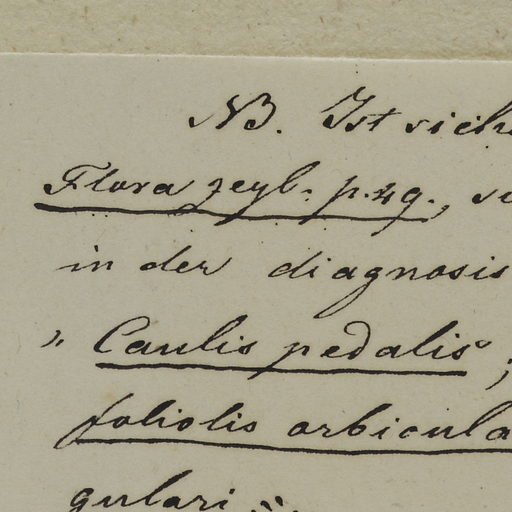 NB. Ist sich
Flora zeyl. p. 49.,
in der diagnosis
„ Caulis pedalis,
foliolis orbicula
gulari